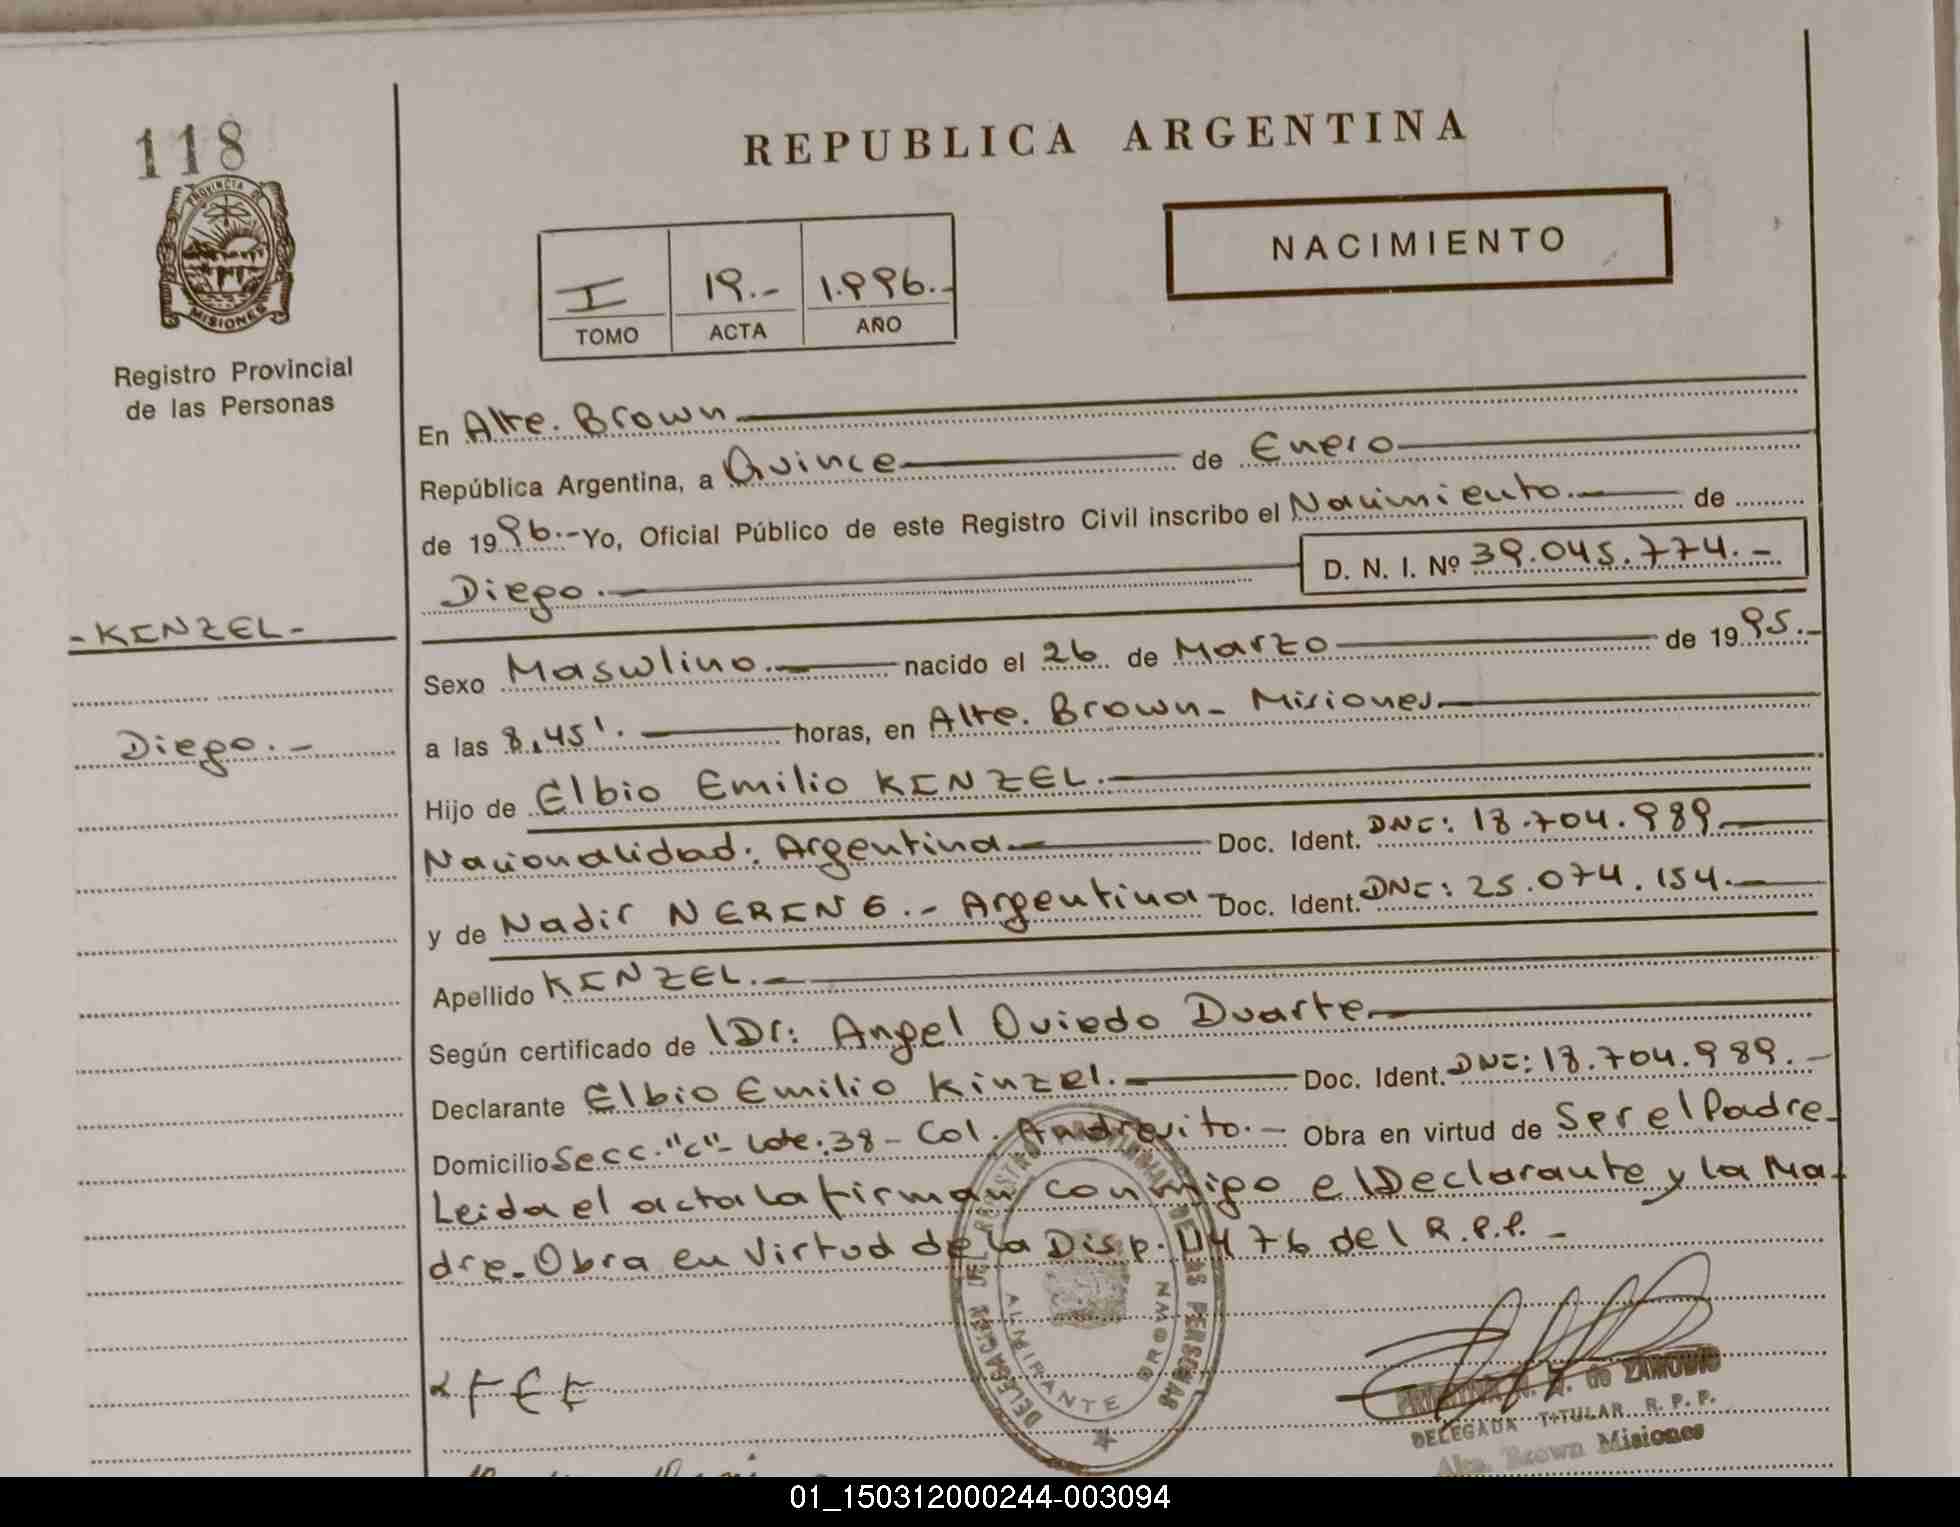 118
PROVINCIA DE
MISIONES
Registro Provincial
de las Personas
REPUBLICA ARGENTINA
NACIMIENTO
I 19.- 1.996.-
TOMO ACTA AÑO
En Alte. Brown
República Argentina, a Quince de Enero
de 1996.- Yo, Oficial Público de este Registro Civil inscribo el Nacimiento. de
Diego.
D. N. I. Nº 39.045.774.-
-KINZEL-
Diego.-
Sexo Masculino. nacido el 26 de Marzo de 1995.-
a las 8,45'. horas, en Alte. Brown - Misiones
Hijo de Elbio Emilio KINZEL.
Nacionalidad: Argentina Doc. Ident. DNI: 18.704.989
y de Nadir NERING.- Argentina Doc. Ident. DNI: 25.074.154.
Apellido KINZEL.-
Según certificado de Dr: Angel Oviedo Duarte
Declarante Elbio Emilio Kinzel. Doc. Ident. DNI: 18.704.989.-
Domicilio Secc. "C" - Lote: 38 - Col. Andresito.- Obra en virtud de Ser el Padre-
Leida el acta la firman conmigo el Declarante y la Ma-
dre. Obra en Virtud de la Disp. 1476 del R.P.P. -
DELEGACION DEL REGISTRO DE LAS PERSONAS
ALMIRANTE BROWN
N. de ZAMUDIO
DELEGADA TITULAR R. P. P.
Alte. Brown Misiones
01_150312000244-003094